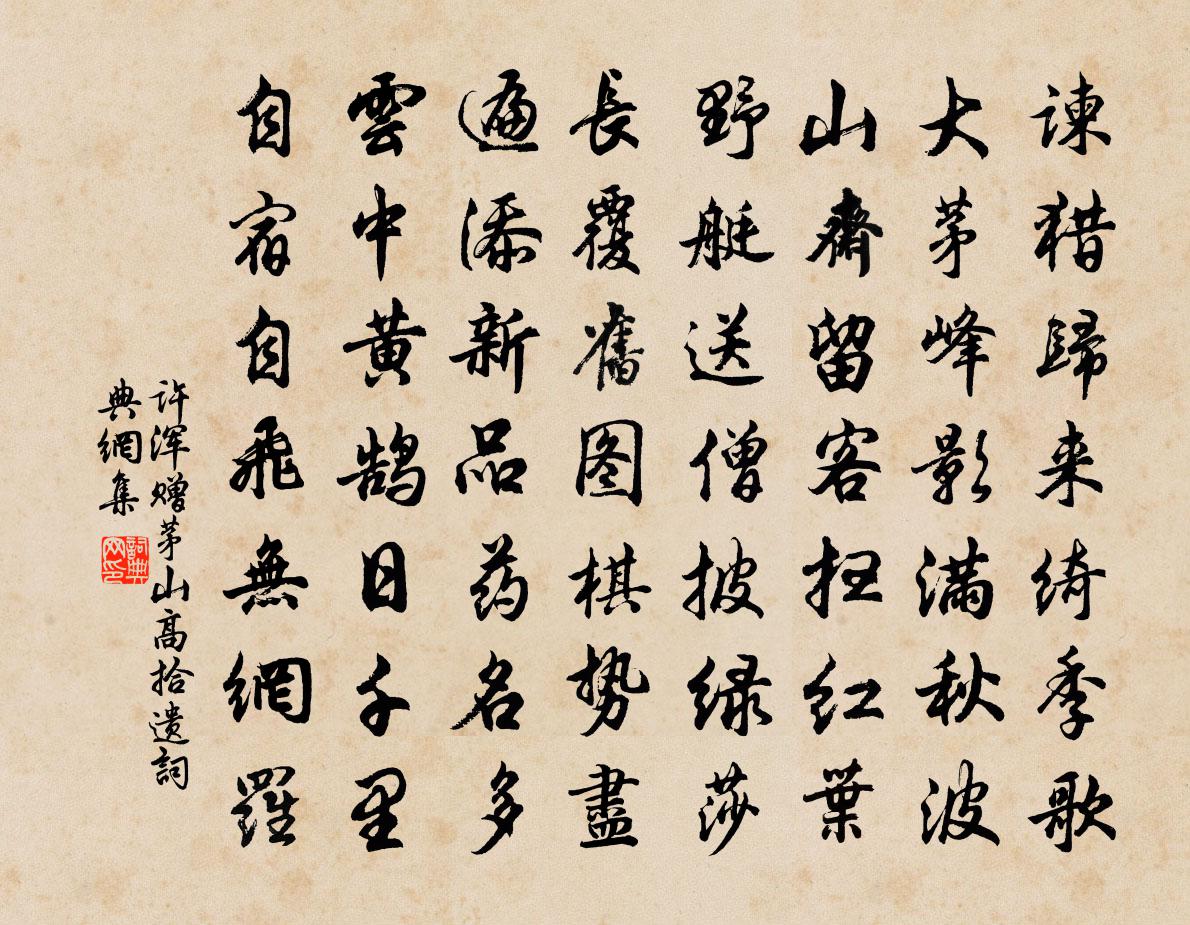 谏猎歸来绮季歌
大茅峰影满秋波
山齋留客扫红葉
野艇送僧披绿莎
長覆舊图棋势盡
遍添新品药名多
雲中黄鹄日千里
自宿自飛無網羅
许浑赠茅山高拾遗詞
典網集
詞典网印